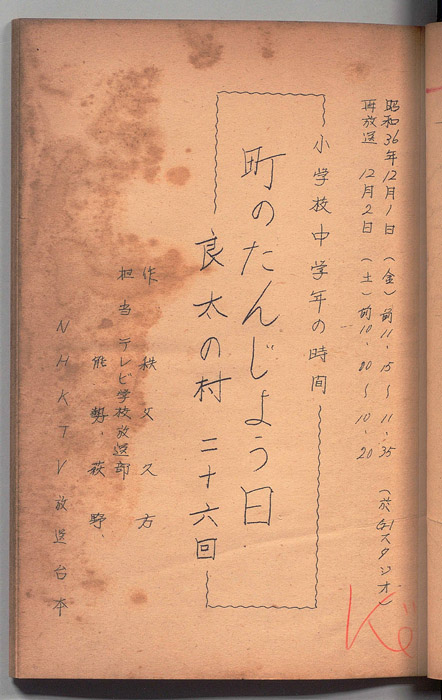 昭和36年12月1日(金)前11.15〜11.35(於G1スタジオ)
再放送 12月2日(土)前10.00〜10.20
小学校中学年の時間
町のたんじょう日
良太の村 二十六回
作 秩父久方
担当 テレビ学校放送部
能勢、萩野、
NHKTV放送台本